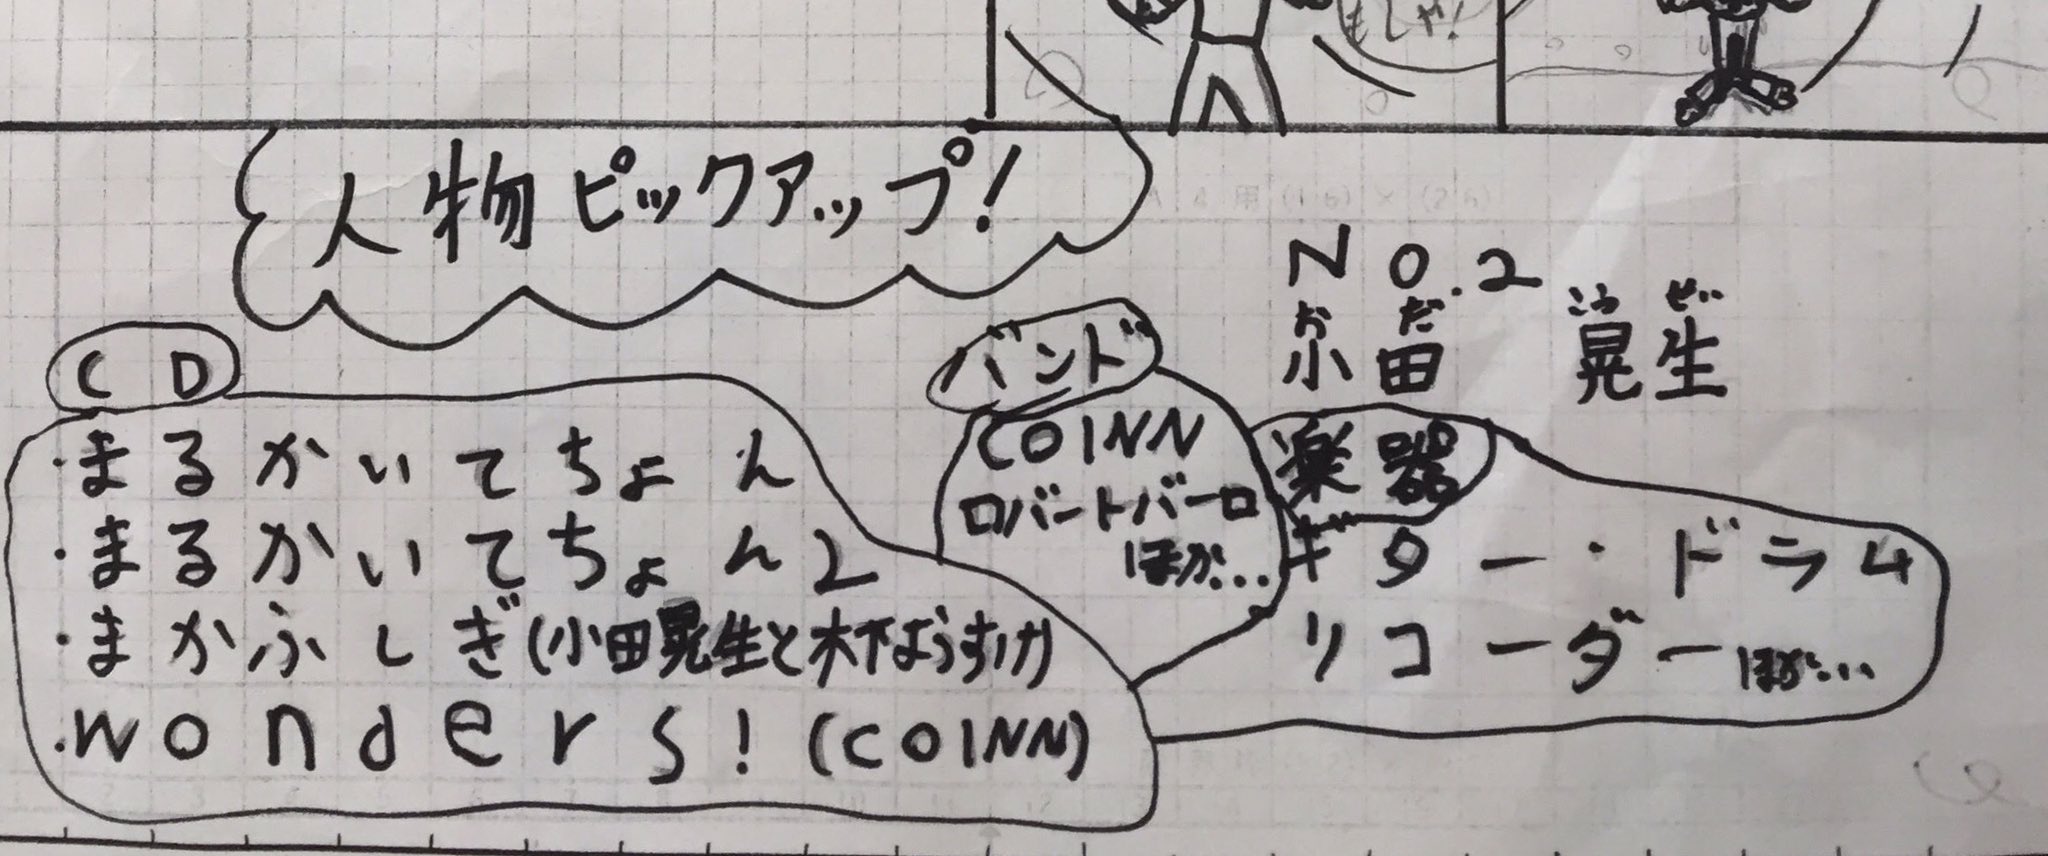 もしゃ!
人物ピックアップ!
NO.2
おだ こうせい
小田 晃生
CD
・まるかいてちょん
・まるかいてちょん2
・まかふしぎ(小田晃生と木下ようすけ)
・wonders!(COINN)
バンド
COINN
ロバートバーロ
ほか…
楽器
ギター・ドラム
リコーダーほか…